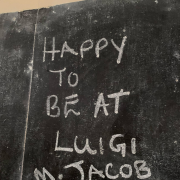 HAPPY
TO
BE AT
LUIGI
M. JACOB